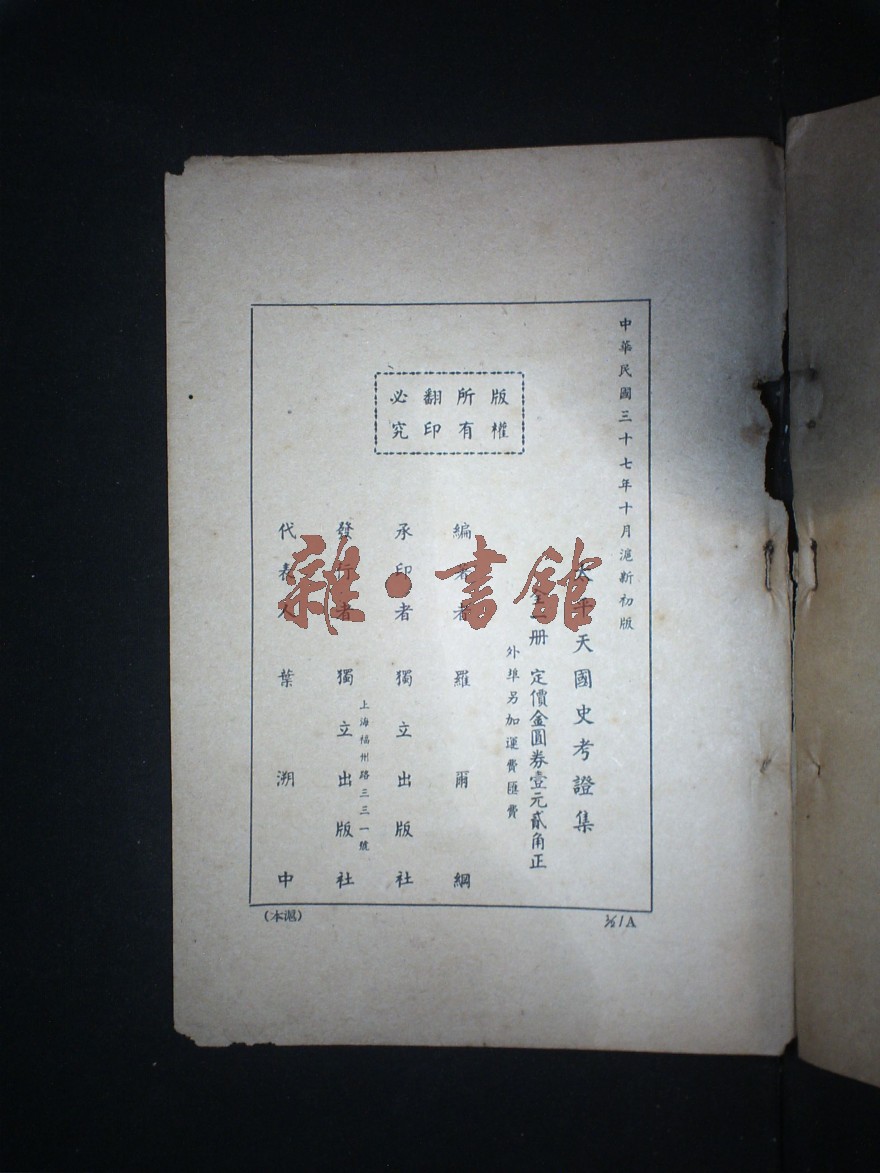 中華民國三十七年十月滬新初版
太平天國史考證集
全一册 定價金圓券壹元貳角正
外埠另加運費匯費
版權
所有
翻印
必究
編著者 羅爾綱
承印者 獨立出版社
上海福州路三三一號
發行者 獨立出版社
代表人 葉溯中
(本滬)
1/A
雜·書館